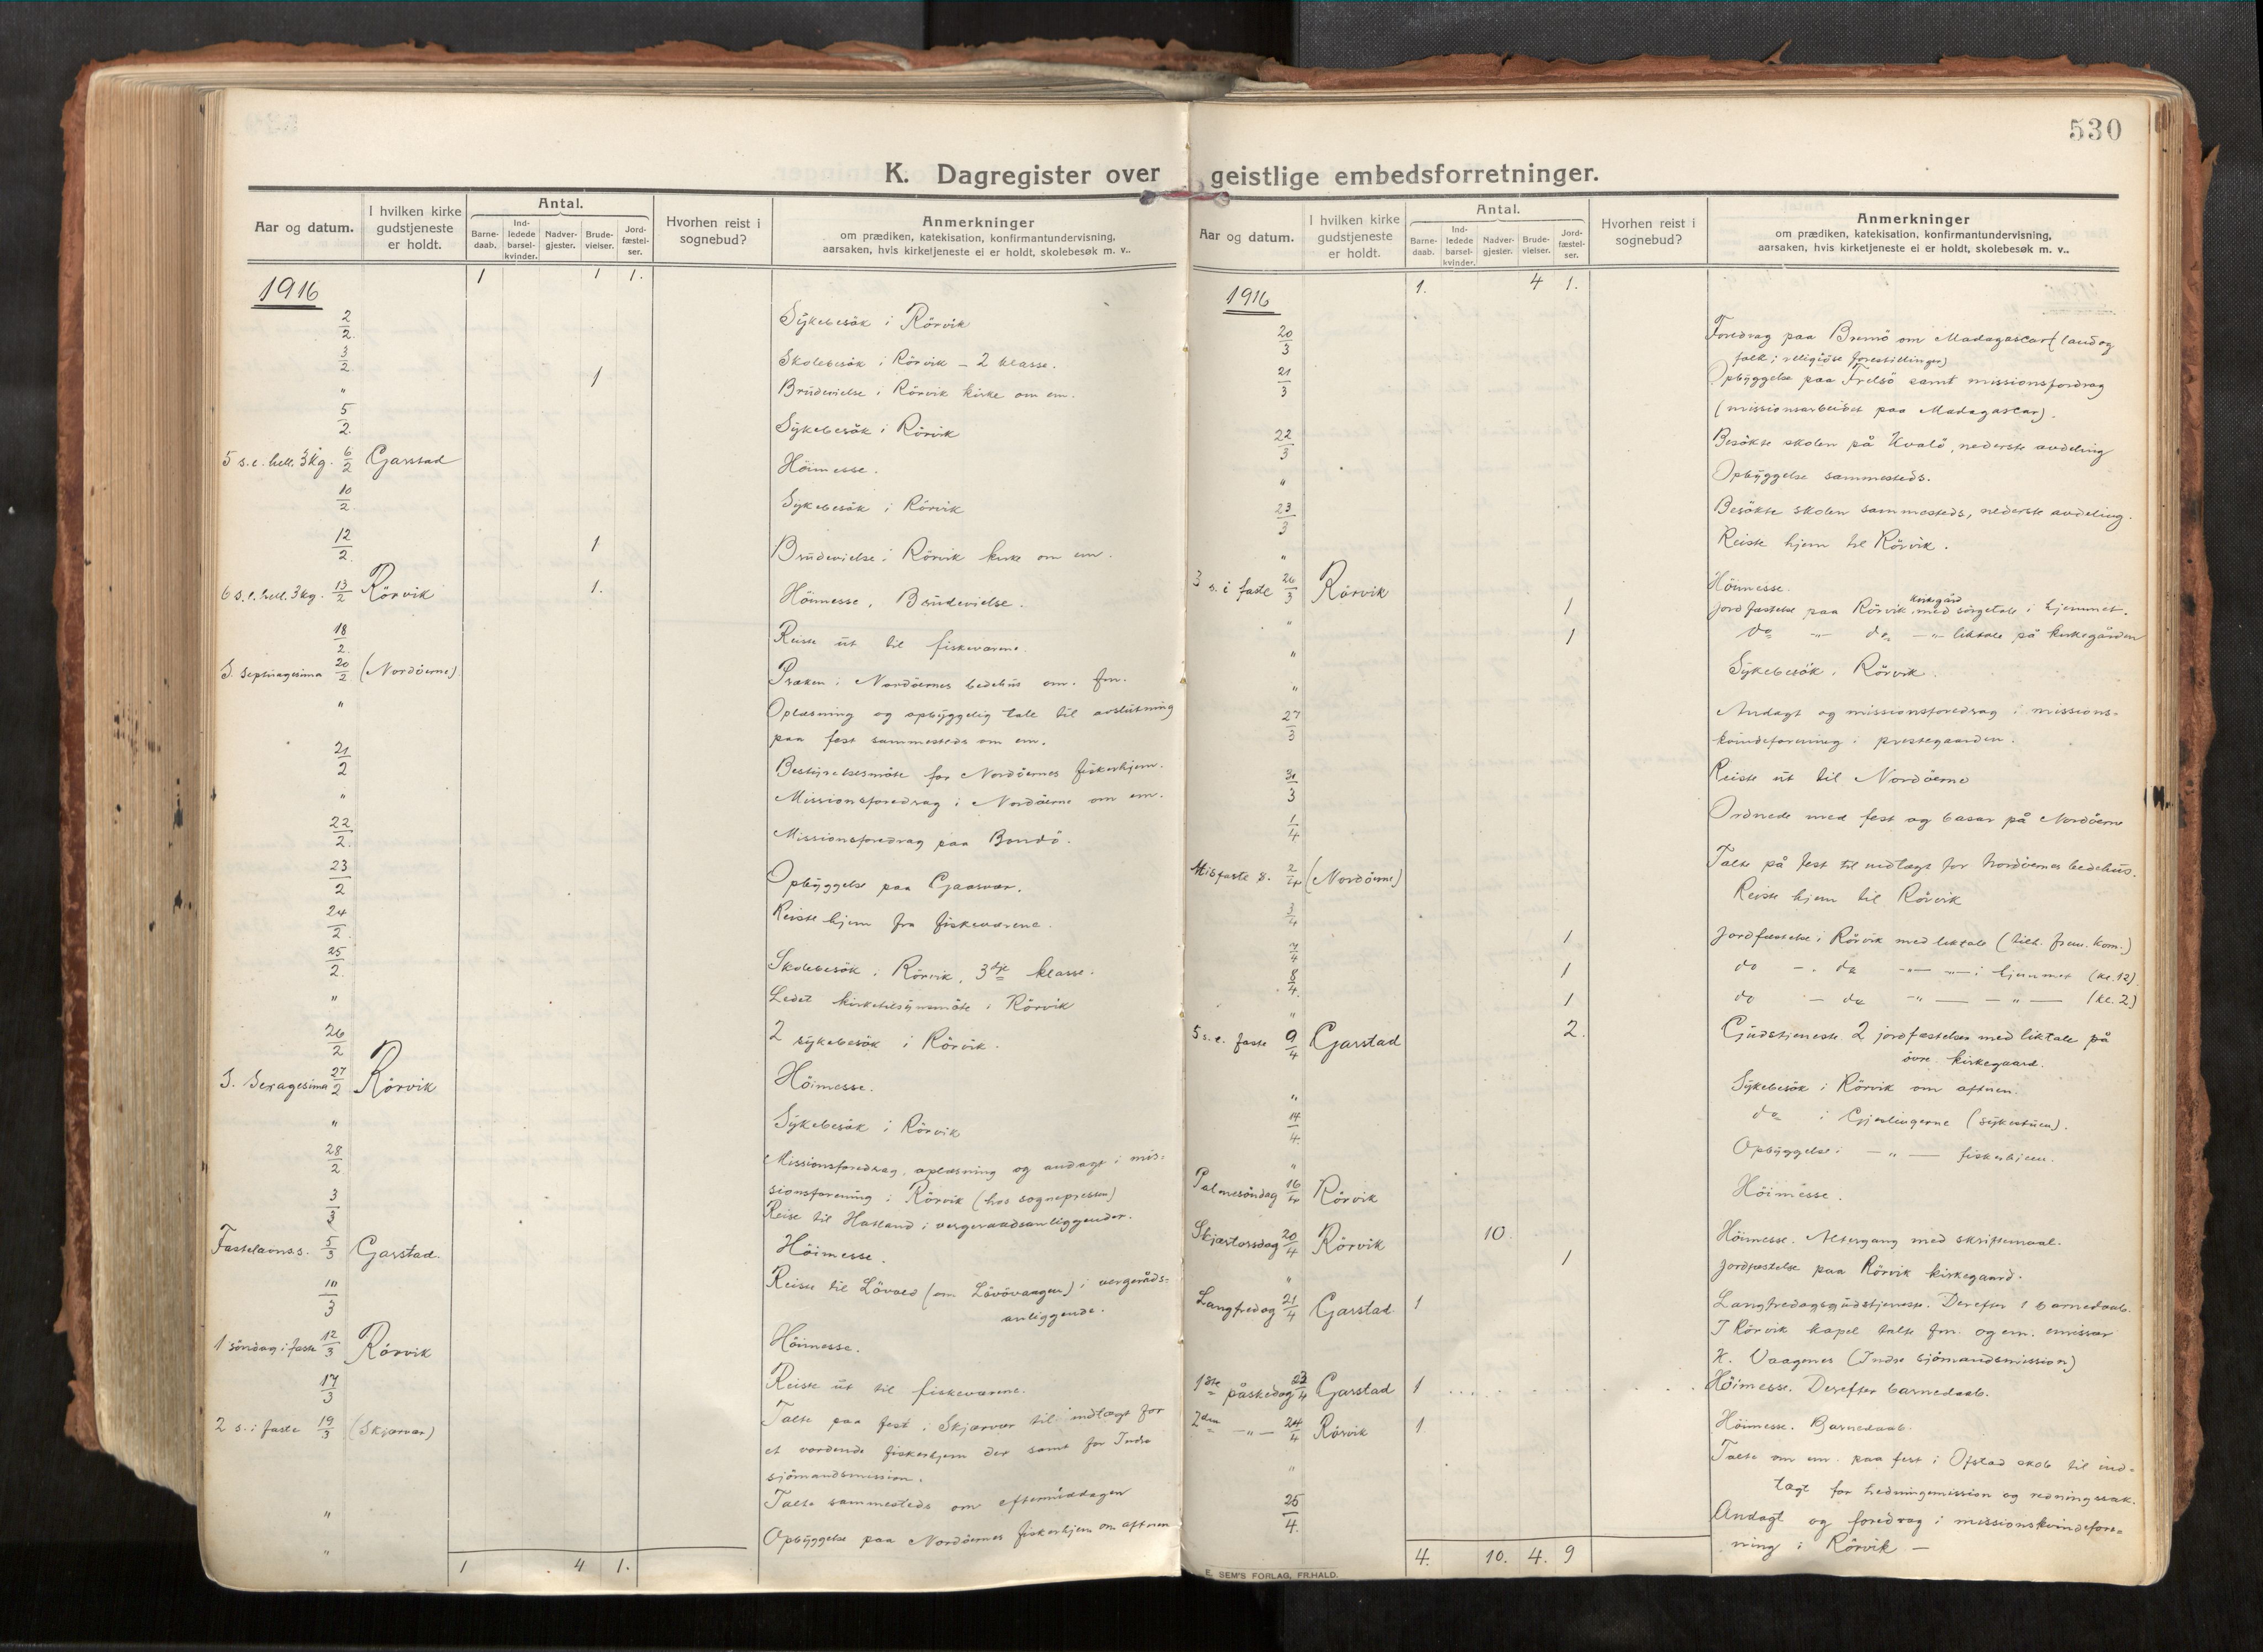 530
K. Dagregister over geistlige embedsforretninger.
Aar og datum.
I hvilken kirke gudstjeneste er holdt.
Antal.
Barne-daab.
Ind-ledede barsel-kvinder.
Nadver-gjester.
Brude-vielser.
Jord-fæstel-ser.
Hvorhen reist i sognebud?
Anmerkninger
om prædiken, katekisation, konfirmantundervisning,
aarsaken, hvis kirketjeneste ei er holdt, skolebesøk m. v..
1 1 1.
1916
2/2 Sykebesök i Rörvik
3/2 Skolebesök i Rörvik – 2 klasse.
" 1 Brudevielse i Rörvik kirke om em.
5/2 Sykebesök i Rörvik
5 s. e. hell. 3 kg. 6/2 Garstad Höimesse.
10/2 Sykebesök i Rörvik
12/2 1 Brudevielse i Rörvik kirke om em.
6 s. e. hell. 3 kg. 13/2 Rörvik 1. Höimesse, Brudevielse.
18/2 Reiste ut til fiskeværene.
S. Septuagesima 20/2 (Nordöerne) Præken i Nordöernes bedehus om. fm.
" Oplæsning og opbyggelig tale til avslutning
paa fest sammesteds om em.
21/2 Bestyrelsesmöte for Nordöernes fiskerhjem.
" Missionsforedrag i Nordöerne om em.
22/2 Missionsforedrag paa Bondö.
23/2 Opbyggelse paa Gaasvær.
24/2 Reiste hjem fra fiskeværene.
25/2 Skolebesök i Rörvik, 3dje klasse.
" Ledet kirketilsynsmöte i Rörvik
26/2 2 sykebesök i Rörvik.
S. Sexagesima 27/2 Rörvik Höimesse.
" Sykebesök i Rörvik
28/2 Missionsforedrag, oplæsning og andagt i mis=
sionsforening i Rörvik (hos sognepresten)
3/3 Reise til Hatland i vergeraadsanliggender.
Fastelavnss. 5/3 Garstad. Höimesse.
10/3 Reise til Lövold (om Lövövaagen) i vergeråds=
anliggende.
1 söndag i faste 12/3 Rörvik Höimesse.
17/3 Reiste ut til fiskeværene.
2 s. i faste 19/3 (Skjærvær) Talte paa fest i Skjærvær til indtægt for
et vordende fiskerhjem der samt for Indre
sjömandsmission.
" Talte sammesteds om eftermiddagen
" Opbyggelse paa Nordöernes fiskerhjem om aftenen
1 4 1.
Aar og datum.
I hvilken kirke gudstjeneste er holdt.
Antal.
Barne-daab.
Ind-ledede barsel-kvinder.
Nadver-gjester.
Brude-vielser.
Jord-fæstel-ser.
Hvorhen reist i sognebud?
Anmerkninger
om prædiken, katekisation, konfirmantundervisning,
aarsaken, hvis kirketjeneste ei er holdt, skolebesøk m. v..
1. 4 1.
1916
20/3 Foredrag paa Bremö om Madagascar (land og
folk; religiöse forestillinger)
21/3 Opbyggelse paa Frelsö samt missionsfordrag
(missionsarbeidet paa Madagascar).
22/3 Besökte skolen på Kvalö, nederste avdeling
" Opbyggelse sammesteds.
23/3 Besökte skolen sammesteds, nederste avdeling.
" Reiste hjem til Rörvik.
3 s. i faste 26/3 Rörvik Höimesse.
" 1 Jordfæstelse paa Rörvik kirkegård med sörgetale i hjemmet.
" 1 do – " – do – " – liktale på kirkegården
" Sykebesök i Rörvik.
27/3 Andagt og missionsforedrag i missions=
kvindeforening i prestegaarden.
31/3 Reiste ut til Nordöerne
1/4 Ordnede med fest og basar på Nordöerne
Midfaste s. 2/4 (Nordöerne) Talte på fest til indtægt for Nordöernes bedehus.
3/4 Reiste hjem til Rörvik
7/4 1 Jordfæstelse i Rörvik med liktale
8/4 1 do – " do – " – " – i hjemmet (kl. 12)
" 1 do – do – " – – " – (kl. 2)
5 s. i faste 9/4 Garstad 2. Gudstjeneste. 2 jordfæstelser med liktale på
övre kirkegaard.
" Sykebesök i Rörvik om aftenen.
14/4 do i Gjæslingerne (sykestuen).
" Opbyggelse i – " – fiskerhjem.
Palmesöndag 16/4 Rörvik Höimesse.
Skjærtorsdag 20/4 Rörvik 10. Höimesse. Altergang med skriftemaal.
" 1 Jordfæstelse paa Rörvik kirkegaard.
Langfredag 21/4 Garstad 1 Langfredagsgudstjeneste. Derefter 1 barnedaab.
I Rörvik kapel talte fm. og em. emissær
K. Vaagenes (Indre sjömandsmission)
1ste påskedag 23/4 Garstad 1 Höimesse. Derefter barnedaab.
2den – " – 24/4 Rörvik 1 Höimesse. Barnedaab.
" Talte om em. paa fest i Ofstad skole til ind=
tægt for hedningemission og redningssak.
25/4 Andagt og foredrag i missionskvindefore=
ning i Rörvik –
4. 10. 4. 9
E. SEM'S FORLAG, FR.HALD.